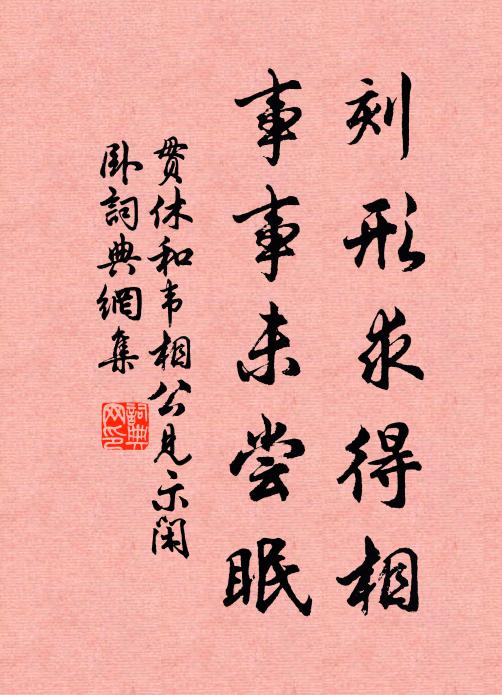 刻形求得相
事事未尝眠
贯休和韦相公见示闲
卧词典網集
詞典网印